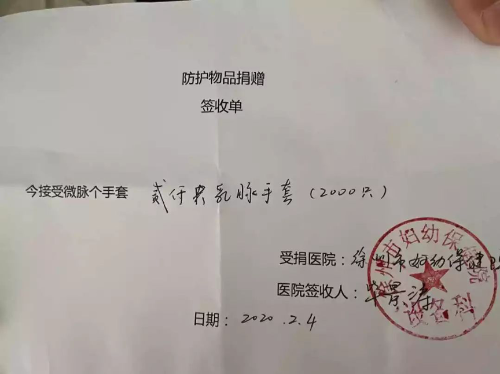 防护物品捐赠
签收单
今接受微脉个手套 贰仟只乳胶手套（2000只）
受捐医院：徐州市妇幼保健院
医院签收人：
日期：2020.2.4
州市妇幼保健院
设备科